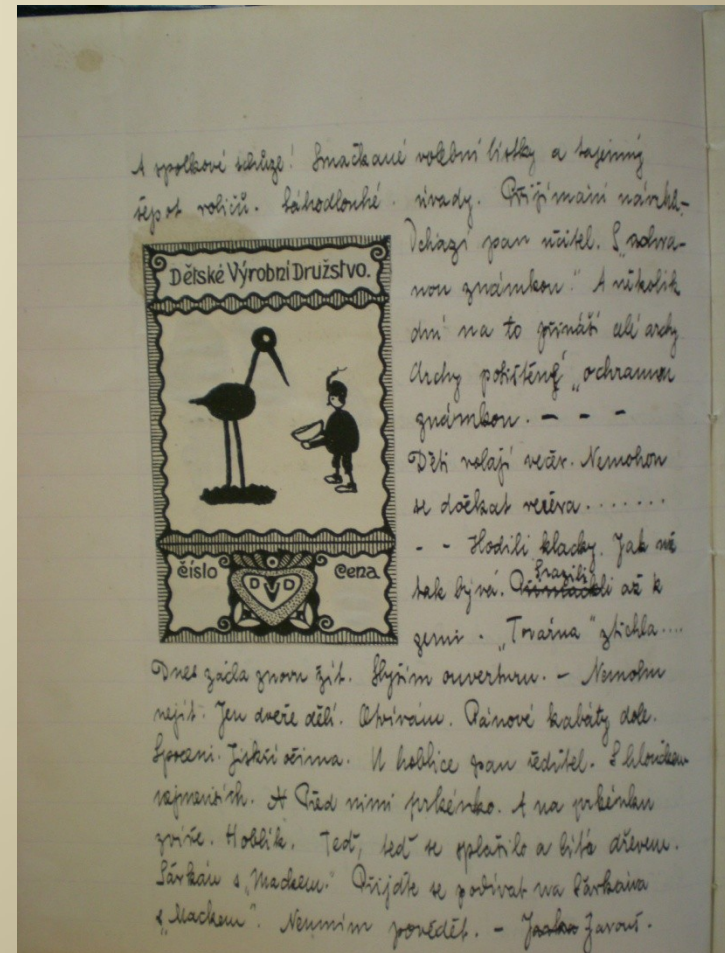 A spolkové schůze! Smačkané volební lístky a tajemný
šepot voličů. Sáhodlouhé úvady. Přijímání návrhů.
Vchází pan učitel. S "ochra-
nou známkou." A několik
dní na to přináší celé archy
Archy potištěné "ochrannou
známkou. - - -
Děti volají večer. Nemohou
se dočkat večera.......
- - Hodili klacky. Jak už
tak bývá. Srazili až k
zemi. "Továrna" ztichla....
Dětské Výrobní Družstvo.
číslo
DVD
Cena
Dnes začla znovu žít. Slyším ouverturu. - Nemohu
nejít. Jen dveře dělí. Otvírám. Pánové kabáty dole.
Spocení. Jiskří očima. U hoblice pan ředitel. S hloučkem
nejmenších. Před nimi prkénko. A na prkénku
zvíře. Hoblík. Teď, teď se splašilo a lítá dřevem.
Šárkán s "Mackem." Přijďte se podívat na Šárkána
s "Mackem". Neumím povědět. - Zavoní.